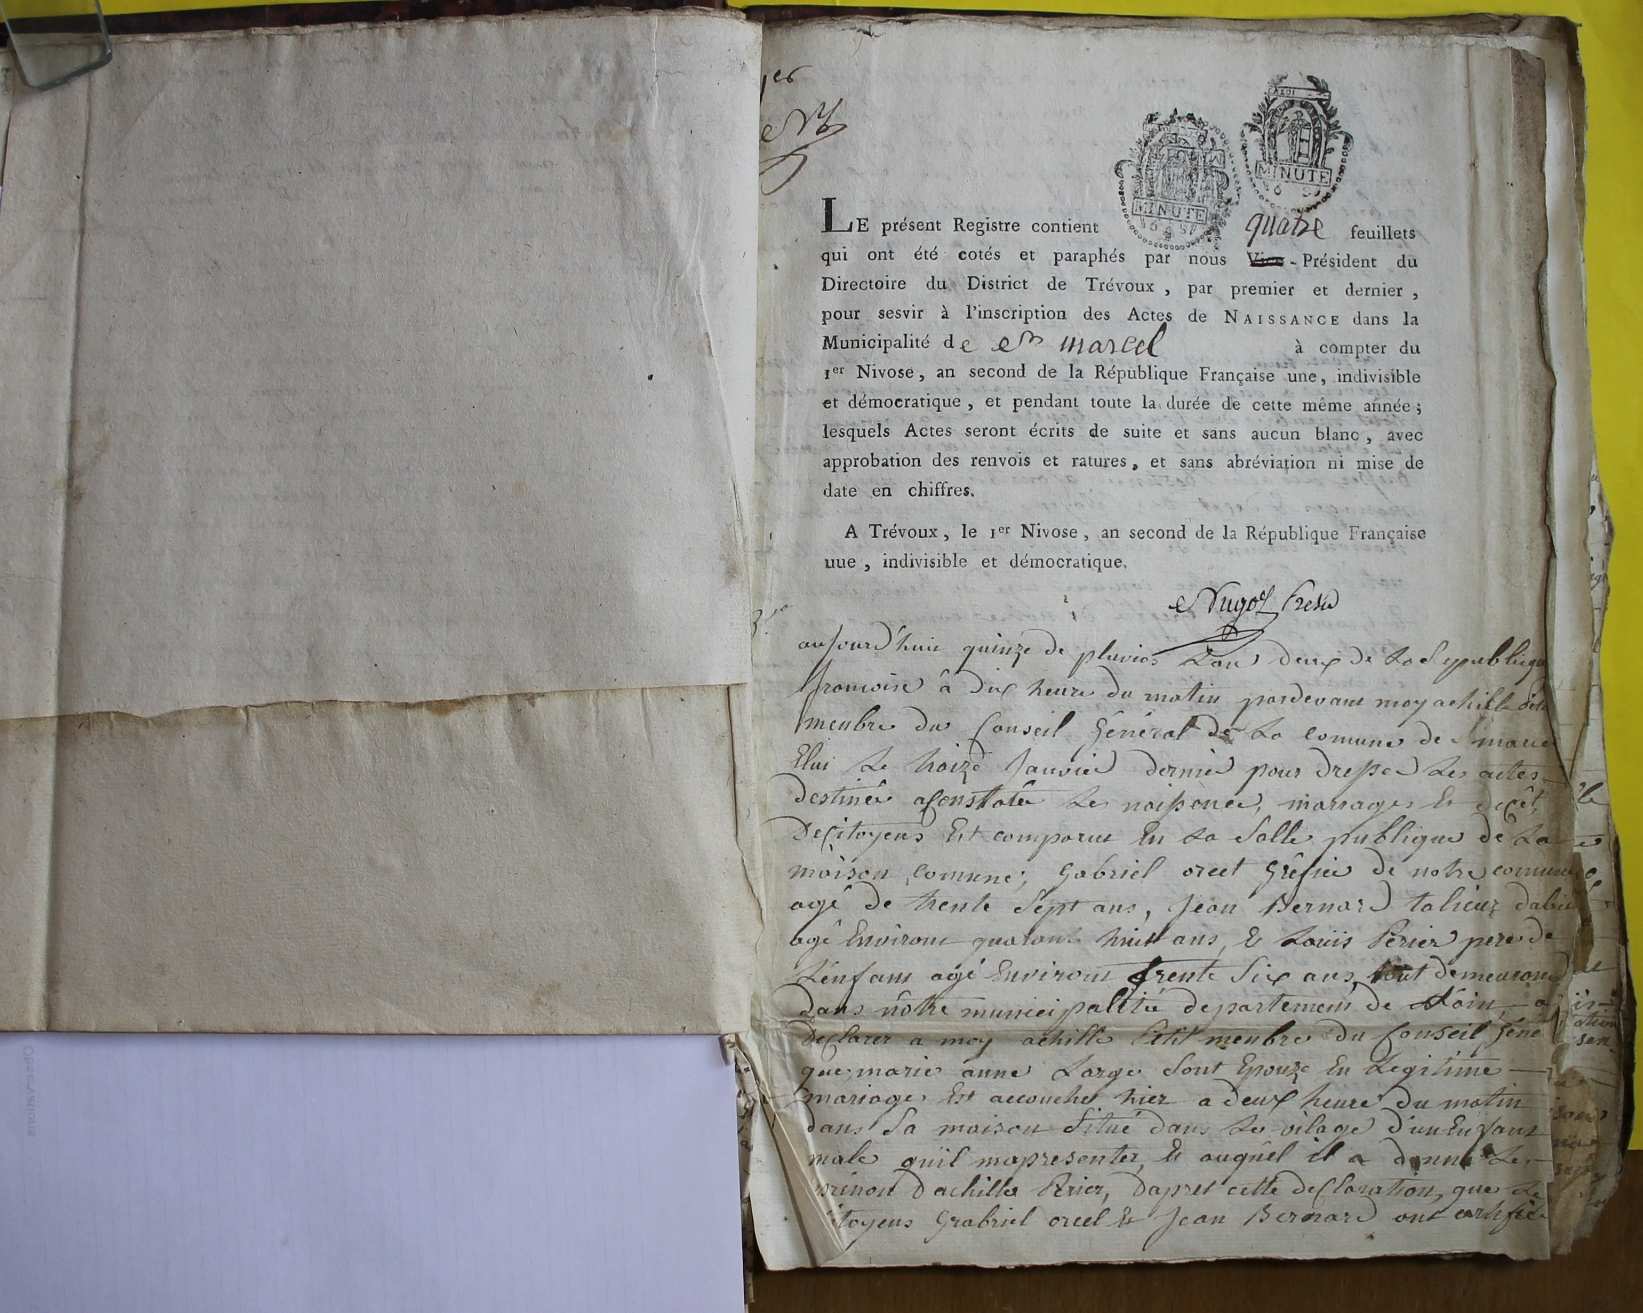 1er
MINUTE
MINUTE
LE présent Registre contient quatre feuillets
qui ont été cotés et paraphés par nous Vice-Président du
Directoire du District de Trévoux, par premier et dernier,
pour sesvir à l'inscription des Actes de NAISSANCE dans la
Municipalité de St marcel à compter du
1er Nivose, an second de la République Française une, indivisible
et démocratique, et pendant toute la durée de cette même année;
lesquels Actes seront écrits de suite et sans aucun blanc, avec
approbation des renvois et ratures, et sans abréviation ni mise de
date en chiffres.
A Trévoux, le 1er Nivose, an second de la République Française
uue, indivisible et démocratique.
aujourd'huie quinze de pluvios Lan deux de La Republique
francoise â dix heure du matin pardevant moy achille
menbre du Conseil Général de La comune de St marcel
Elui Le traize Janvier dernier pour dresser Les actes
destinés aConstater Les naissence, mariages Et decêt
De Citoyens Est comparus En La Salle publique de La
maison comune; Gabriel orcel Gréfier de notre comune
agé de trente Sept ans, Jean Bernard talieur dabit
agé Environt quarante huit ans, Et Loüis Périer pere de
L'enfant agé Environt trente Six ans, tout demeurond
dans nôtre municipalitée departement de Lain, a
Declarer a moy achille Petit menbre du Conseil Géné
que marie anne Large Sont Epouze En Legitime
mariage Est accouchez hier a deux heure du matin
dans Sa maison Situé dans Le vilage d'un Enfant
male quil mapresenter, Et auquel il a donné Le
prénon d'achille Périer, Dapret cette declaration, que Le
citoyens Gabriel orcel Et Jean Bernard ont certifié